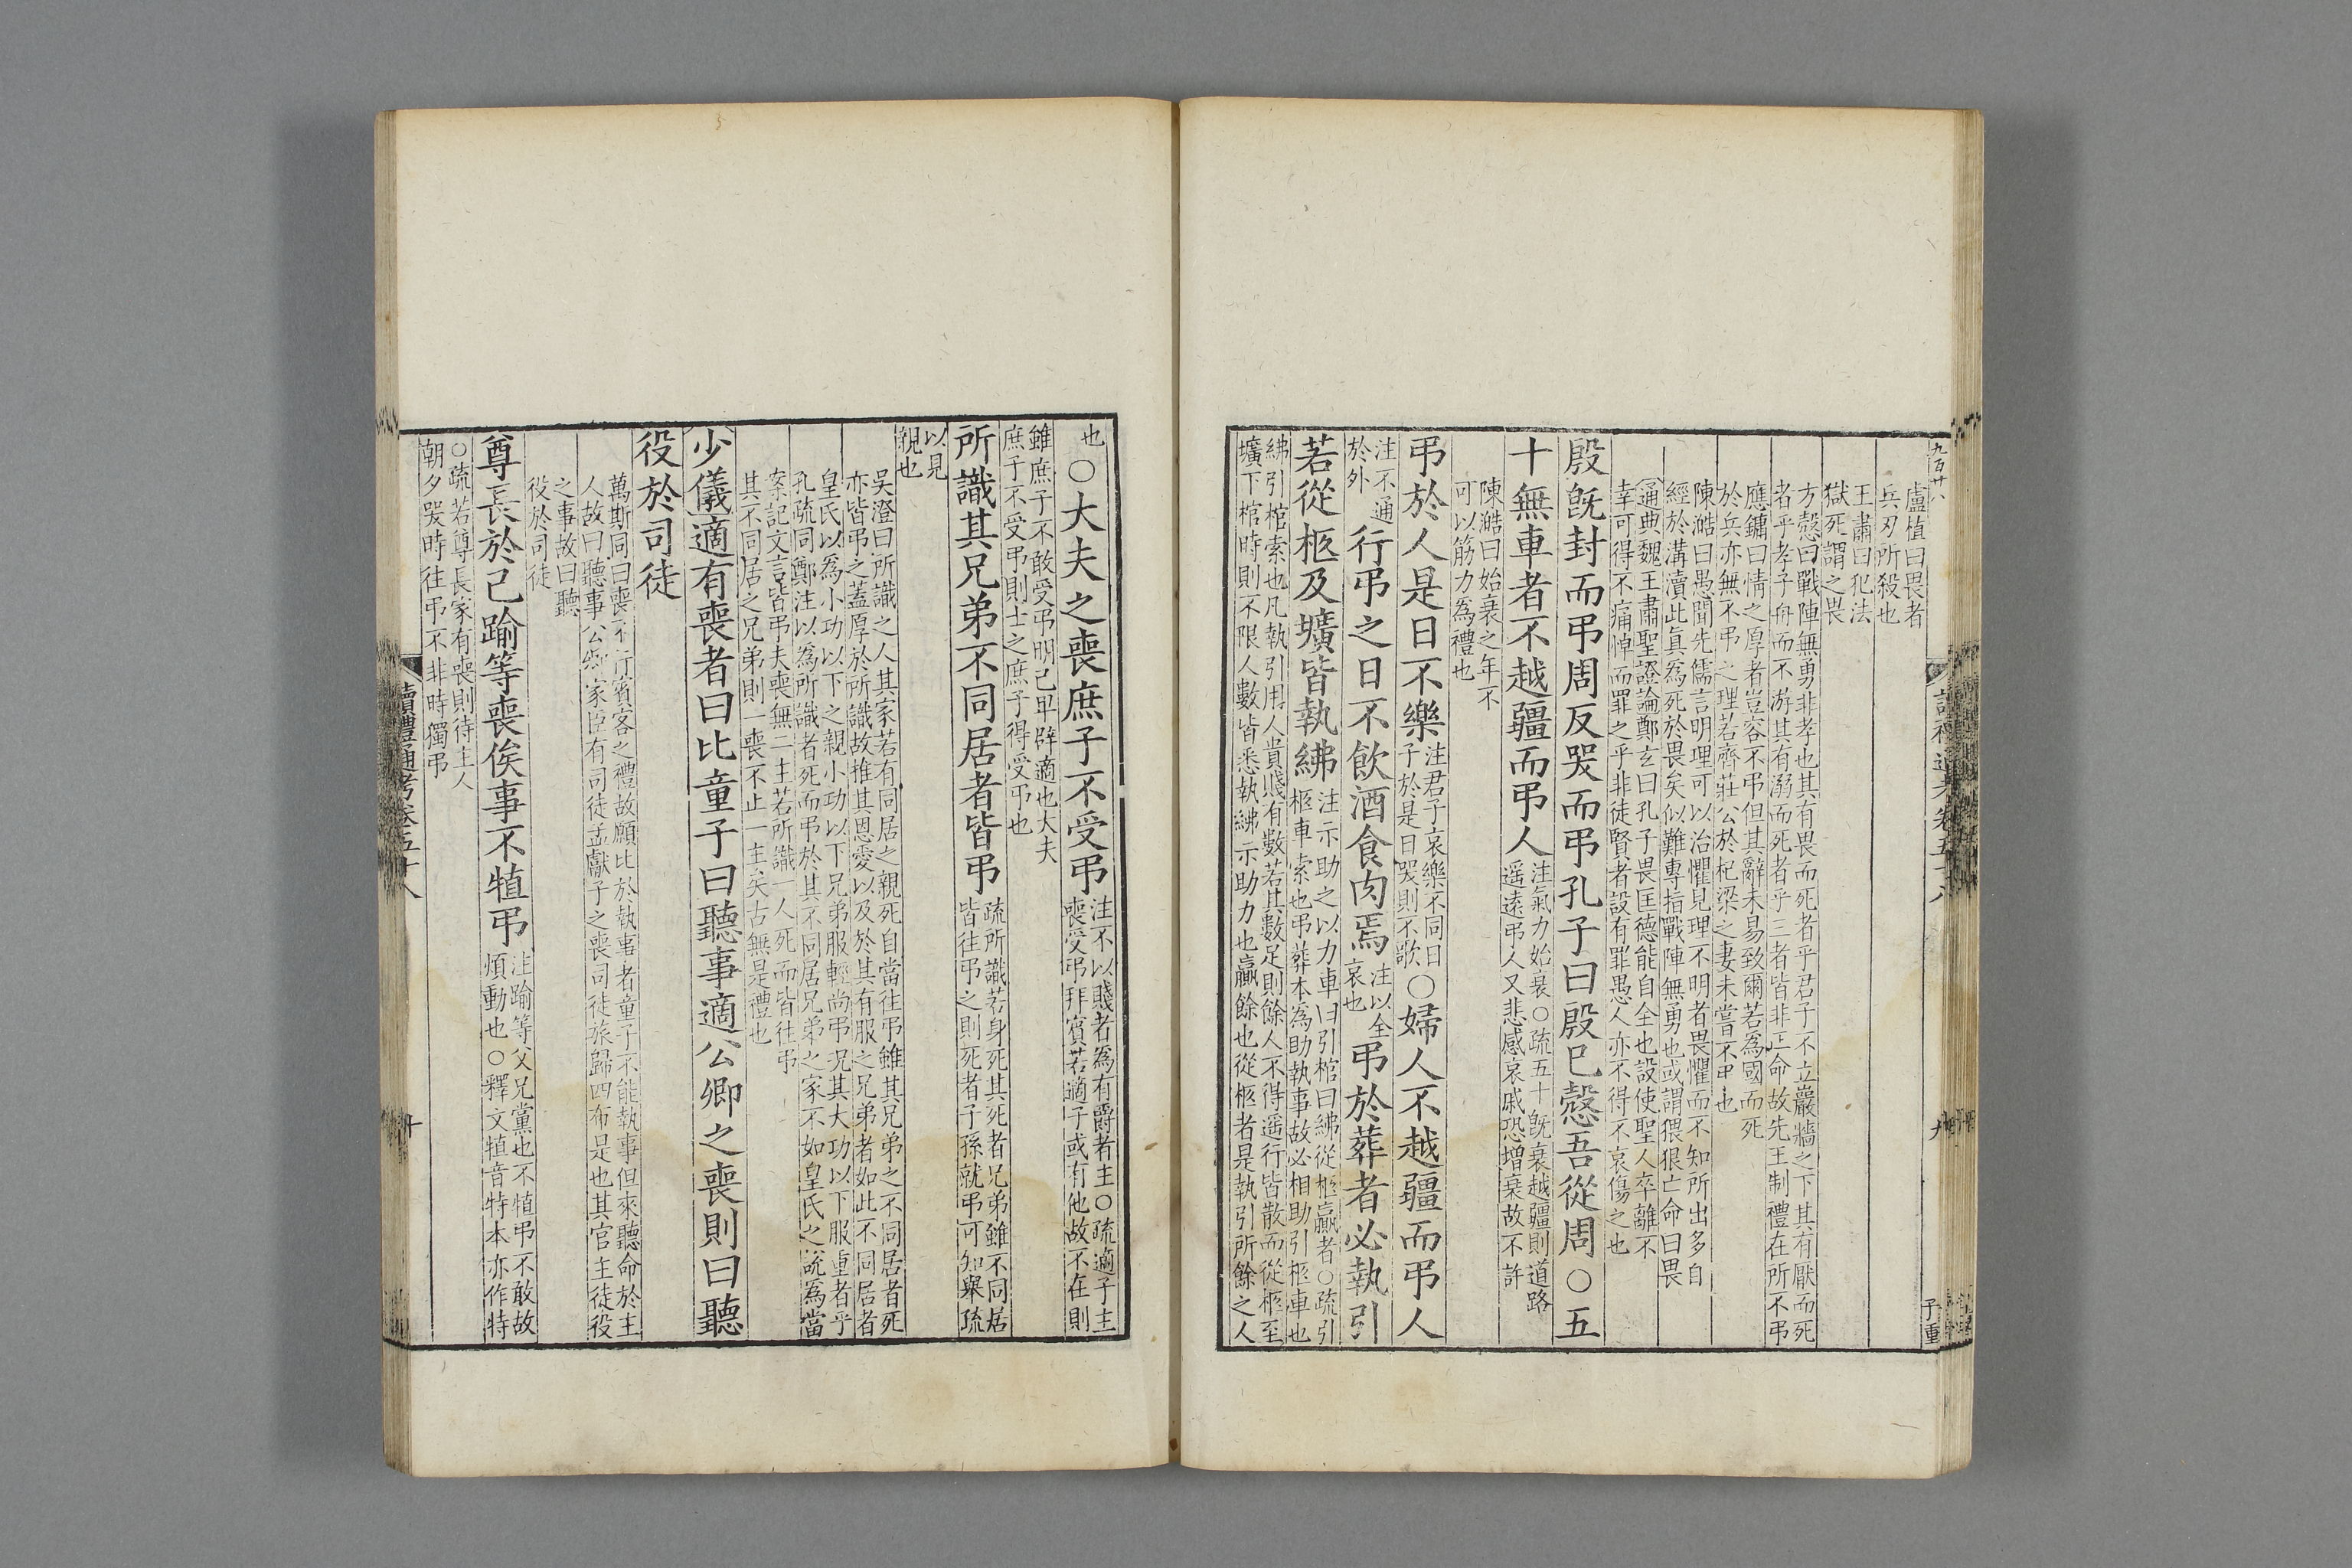 九百廿八
盧植曰畏者
兵刃所殺也
王肅曰犯法
獄死謂之畏
方慤曰戰陣無勇非孝也其有畏而死者乎君子不立巖牆之下其有厭而死
者乎孝子舟而不游其有溺而死者乎三者皆非正命故先王制禮在所不弔
應鏞曰情之厚者豈容不弔但其辭未易致爾若為國而死
於兵亦無不弔之理若齊莊公於杞梁之妻未嘗不弔也
陳澔曰愚聞先儒言明理可以治懼見理不明者畏懼而不知所出多自
經於溝瀆此真為死於畏矣似難專指戰陣無勇也或謂狠亡命曰畏
通典魏王肅聖證論鄭玄曰孔子畏匡德能自全也設使聖人卒離不
幸可得不痛悼而罪之乎非徒賢者設有罪愚人亦不得不哀傷之也
殷旣封而弔周反哭而弔孔子曰殷已慤吾從周○五
十無車者不越疆而弔人
注氣力始衰○疏五十旣衰越疆則道路
遥遠弔人又悲感哀戚恐增衰故不許
陳澔曰始衰之年不
可以筋力為禮也
弔於人是日不樂
注君子哀樂不同日
子於是日哭則不歌
○婦人不越疆而弔人
注不通
於外
行弔之日不飲酒食肉焉
注以全
哀也
弔於葬者必執引
若從柩及壙皆執紼
注示助之以力車曰引棺曰紼從柩贏者○疏引
柩車索也弔葬本為助執事故必相助引柩車也
紼引棺索也凡執引用人貴賤有數若其數足則餘人不得遥行皆散而從柩至
壙下棺時則不限人數皆悉執紼示助力也贏餘也從柩者是執引所餘之人
讀禮通考卷五十八
九
子重
也○大夫之喪庶子不受弔
注不以賤者為有爵者主○疏適子主
喪受弔拜賓若適子或有他故不在則
雖庶子不敢受弔明己卑辟適也大夫
庶子不受弔則士之庶子得受弔也
所識其兄弟不同居者皆弔
疏所識若身死其死者兄弟雖不同居
皆往弔之則死者子孫就弔可知舉疏
以見
親也
吳澄曰所識之人其家若有同居之親死自當往弔雖其兄弟之不同居者死
亦皆弔之蓋厚於所識故推其恩愛以及於其有服之兄弟者如此不同居者
皇氏以為小功以下之親小功以下兄弟服輕尚弔況其大功以下服重者乎
孔疏同鄭注以為所識者死而弔於其不同居兄弟之家不如皇氏之說為當
案記文言皆弔夫喪無二主若所識一人死而皆往弔
其不同居之兄弟則一喪不止一主矣古無是禮也
少儀適有喪者曰比童子曰聽事適公卿之喪則曰聽
役於司徒
萬斯同曰喪不行賓客之禮故願比於執事者童子不能執事但來聽命於主
人故曰聽事公卿家臣有司徒孟獻子之喪司徒旅歸四布是也其官主徒役
之事故曰聽
役於司徒
尊長於己踰等喪俟事不犆弔
注踰等父兄黨也不犆弔不敢故
煩動也○釋文犆音特本亦作特
○疏若尊長家有喪則待主人
朝夕哭時往弔不非時獨弔
讀禮通考卷五十八
十